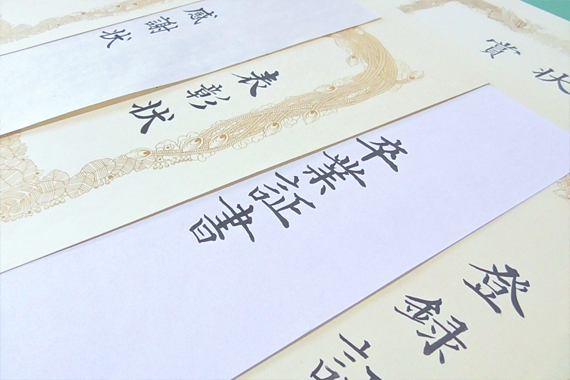 感謝状
表彰状
賞状
卒業証書
登録